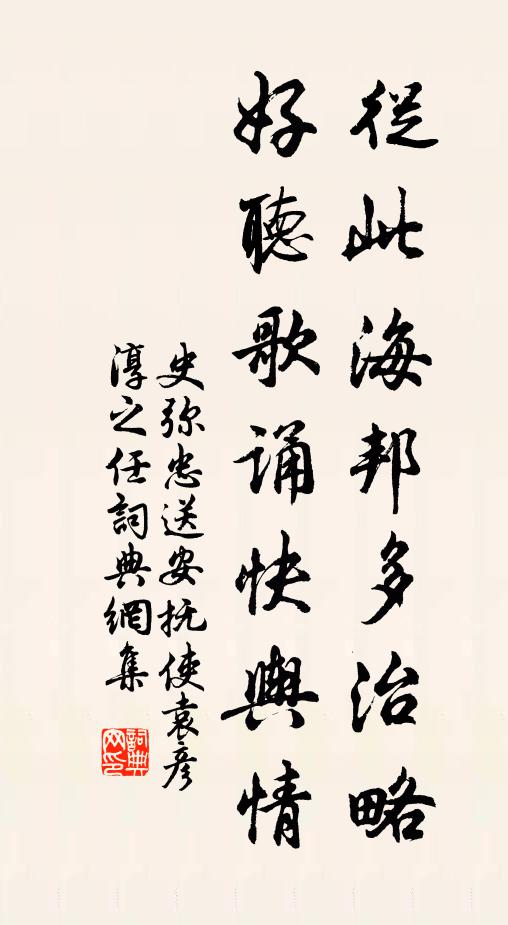 從此海邦多治略
好聽歌誦快輿情
史弥忠送安抚使袁彦
淳之任詞典網集
詞典网印